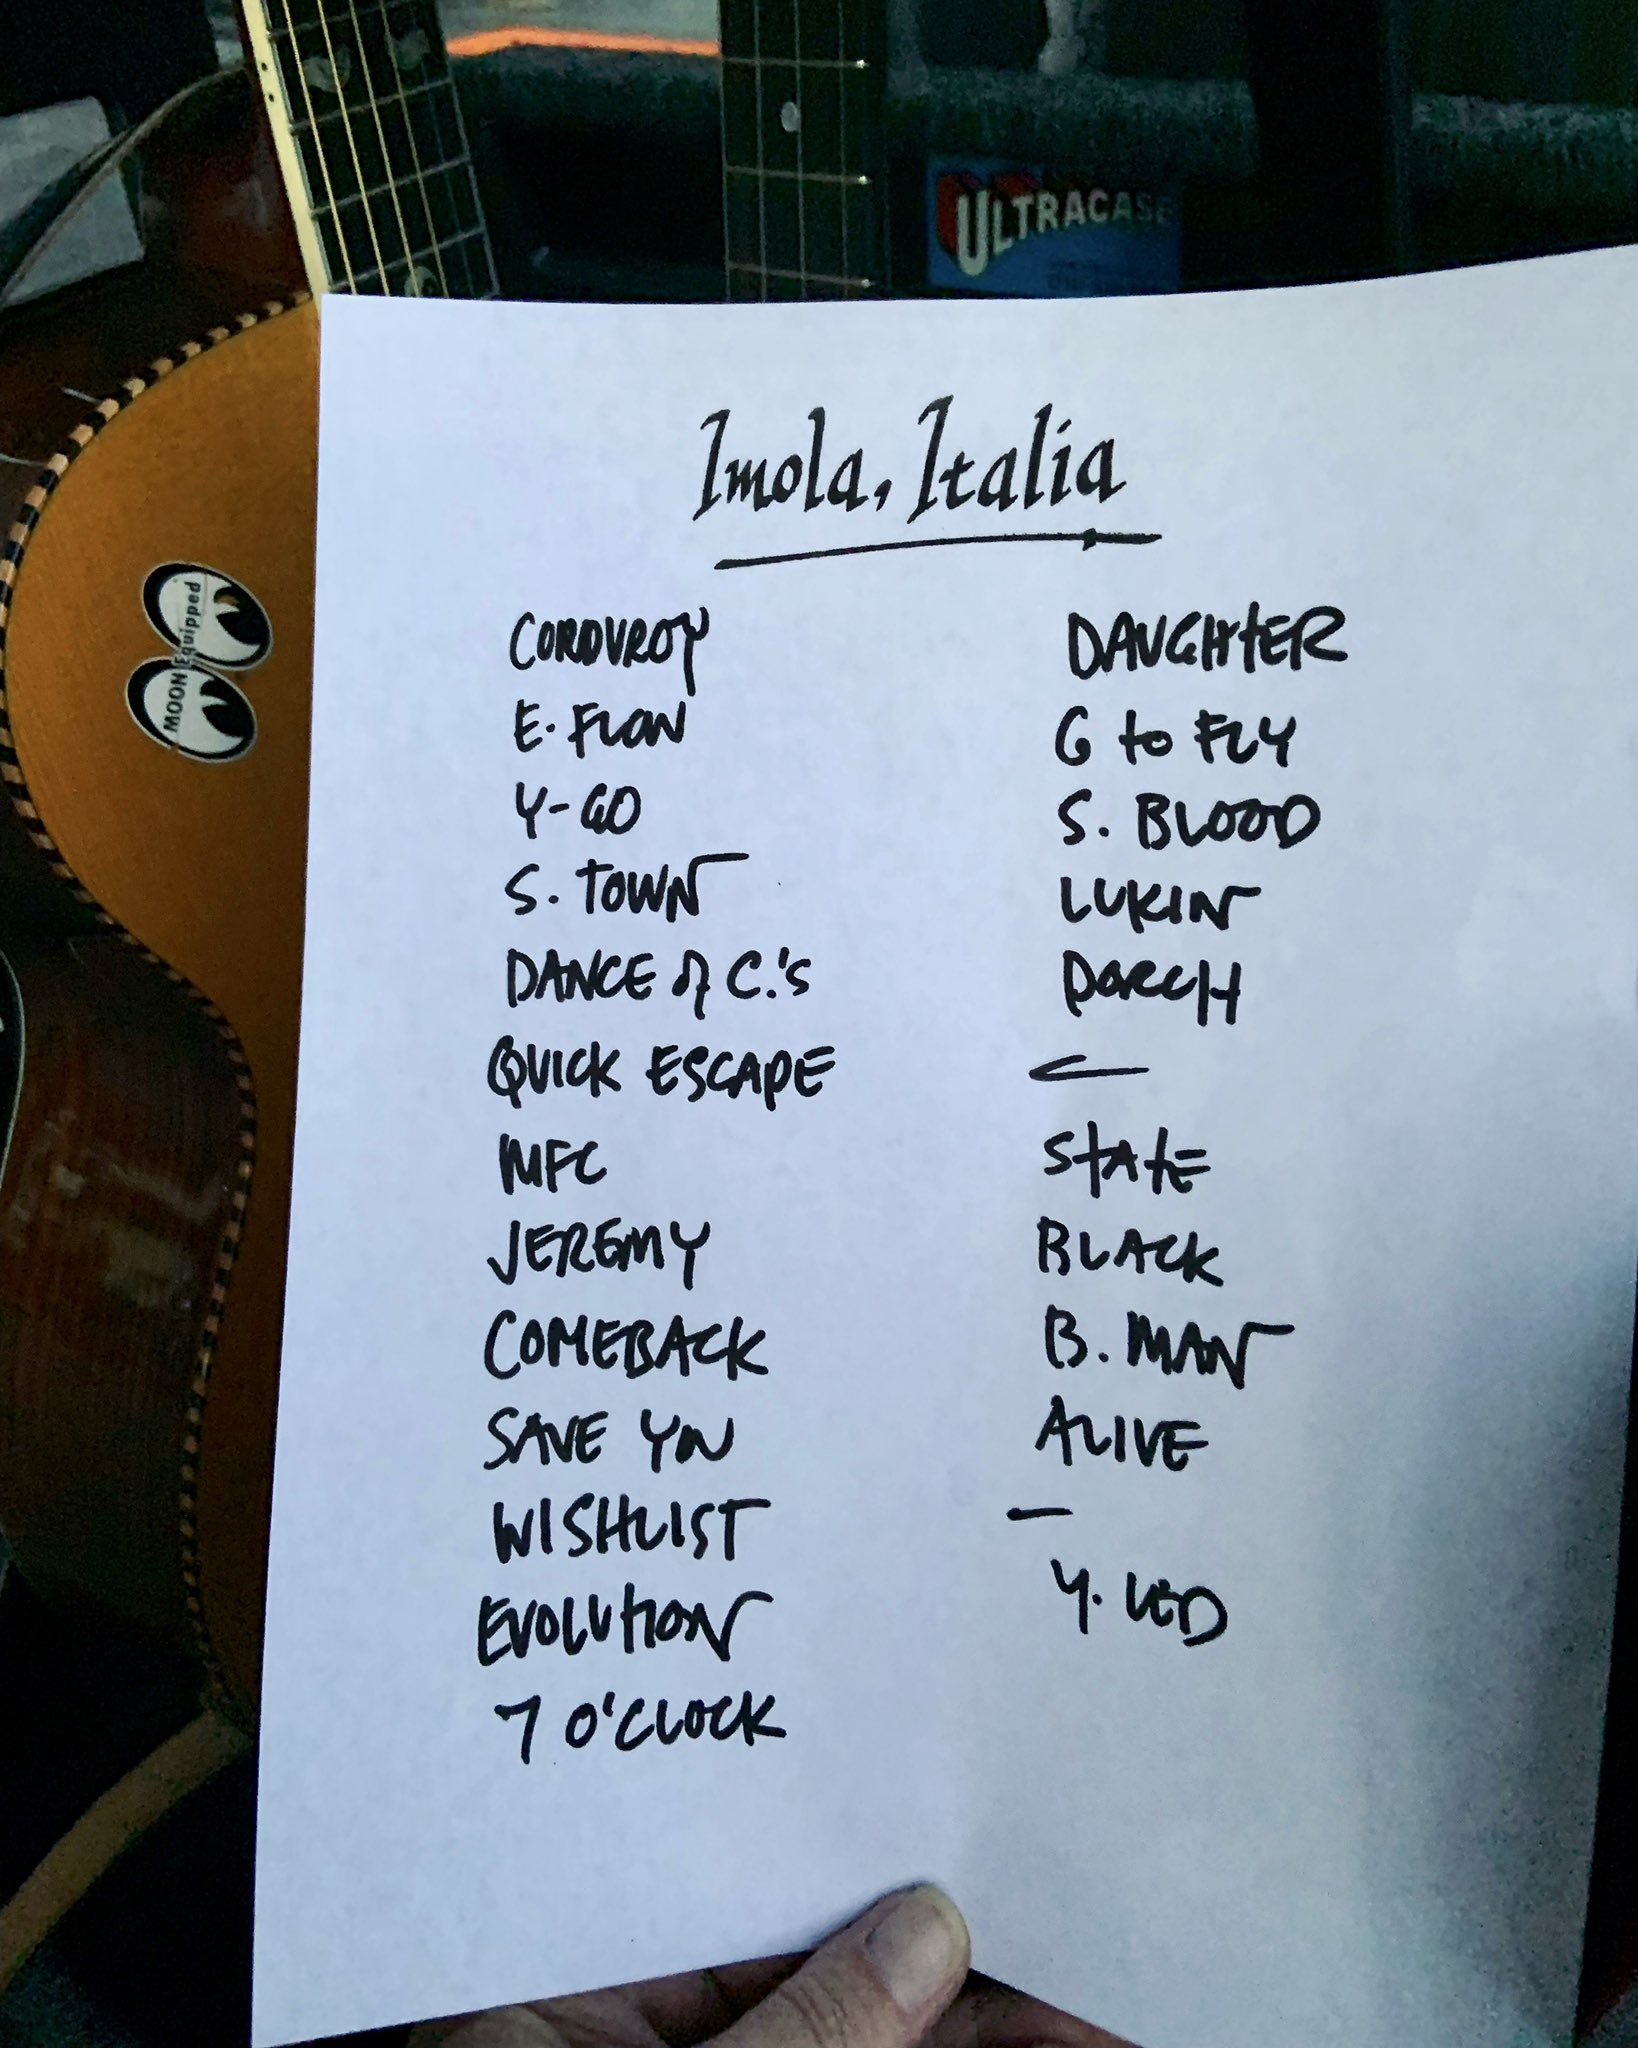 ULTRACASE
MOON Equipped
Imola, Italia
CORDUROY
E. FLOW
Y-GO
S. TOWN
DANCE of C.'S
QUICK ESCAPE
MFC
JEREMY
COMEBACK
SAVE YOU
WISHLIST
EVOLUTION
7 O'CLOCK
DAUGHTER
G to FLY
S. BLOOD
LUKIN
PORCH
STATE
BLACK
B. MAN
ALIVE
—
Y. LED